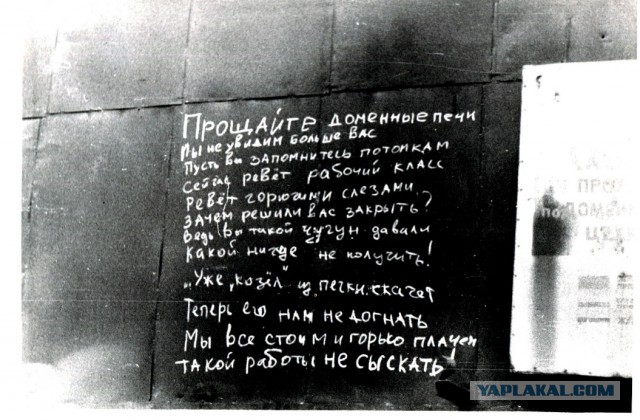 Прощайте доменные печи
Мы не увидим больше вас
Пусть вы запомнитесь потомкам
Сейчас ревёт рабочий класс
Ревёт горючими слезами
Зачем решили вас закрыть?
Ведь вы такой чугун давали
Какой нигде не получить!
"Уже "козёл" из печки скачет
Теперь его нам не догнать
Мы все стоим и горько плачем
такой работы не сыскать!
YAPLAKAL.COM